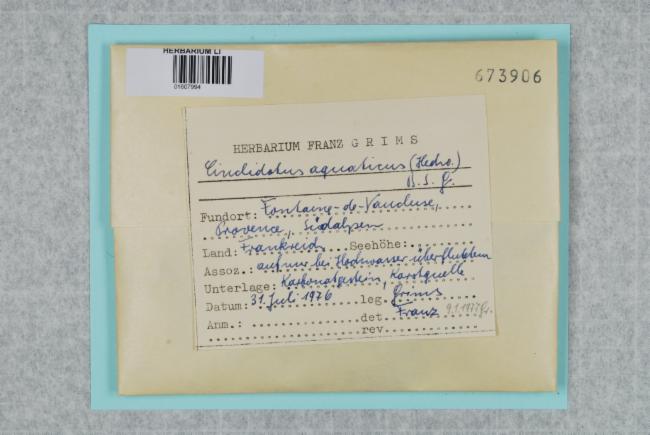 HERBARIUM LI
01607994
673906
HERBARIUM FRANZ GRIMS
Cinclidotus aquaticus (Hedw.)
B. S. G.
Fundort: Fontaine-de-Vaucluse,
Provence, Südalpen
Land: Frankreich Seehöhe:
Assoz.: auf nur bei Hochwasser überflutetem
Unterlage: Karbonatgestein, Karstquelle
Datum: 31. Juli 1976 leg. Grims
Anm.: det. Franz 9.1.1977 Gr.
rev.